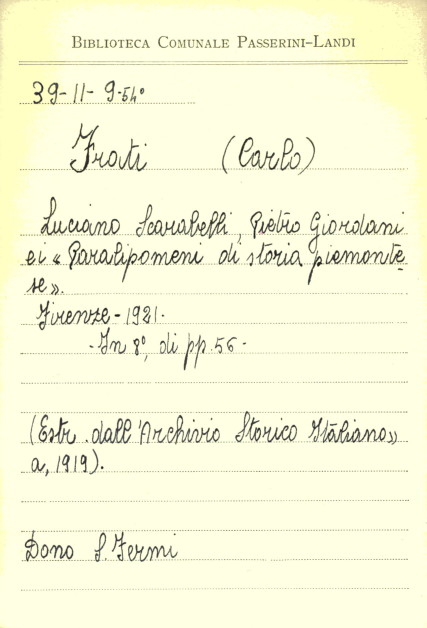 BIBLIOTECA COMUNALE PASSERINI-LANDI
39-11-9-54°
Frati (Carlo)
Luciano Scarabelli, Pietro Giordani
e i « Paralipomeni di storia piemonte
se ».
Firenze - 1921.
- In 8°, di pp. 56 -
(Estr. dall'Archivio Storico Italiano »
a, 1919).
Dono S. Fermi